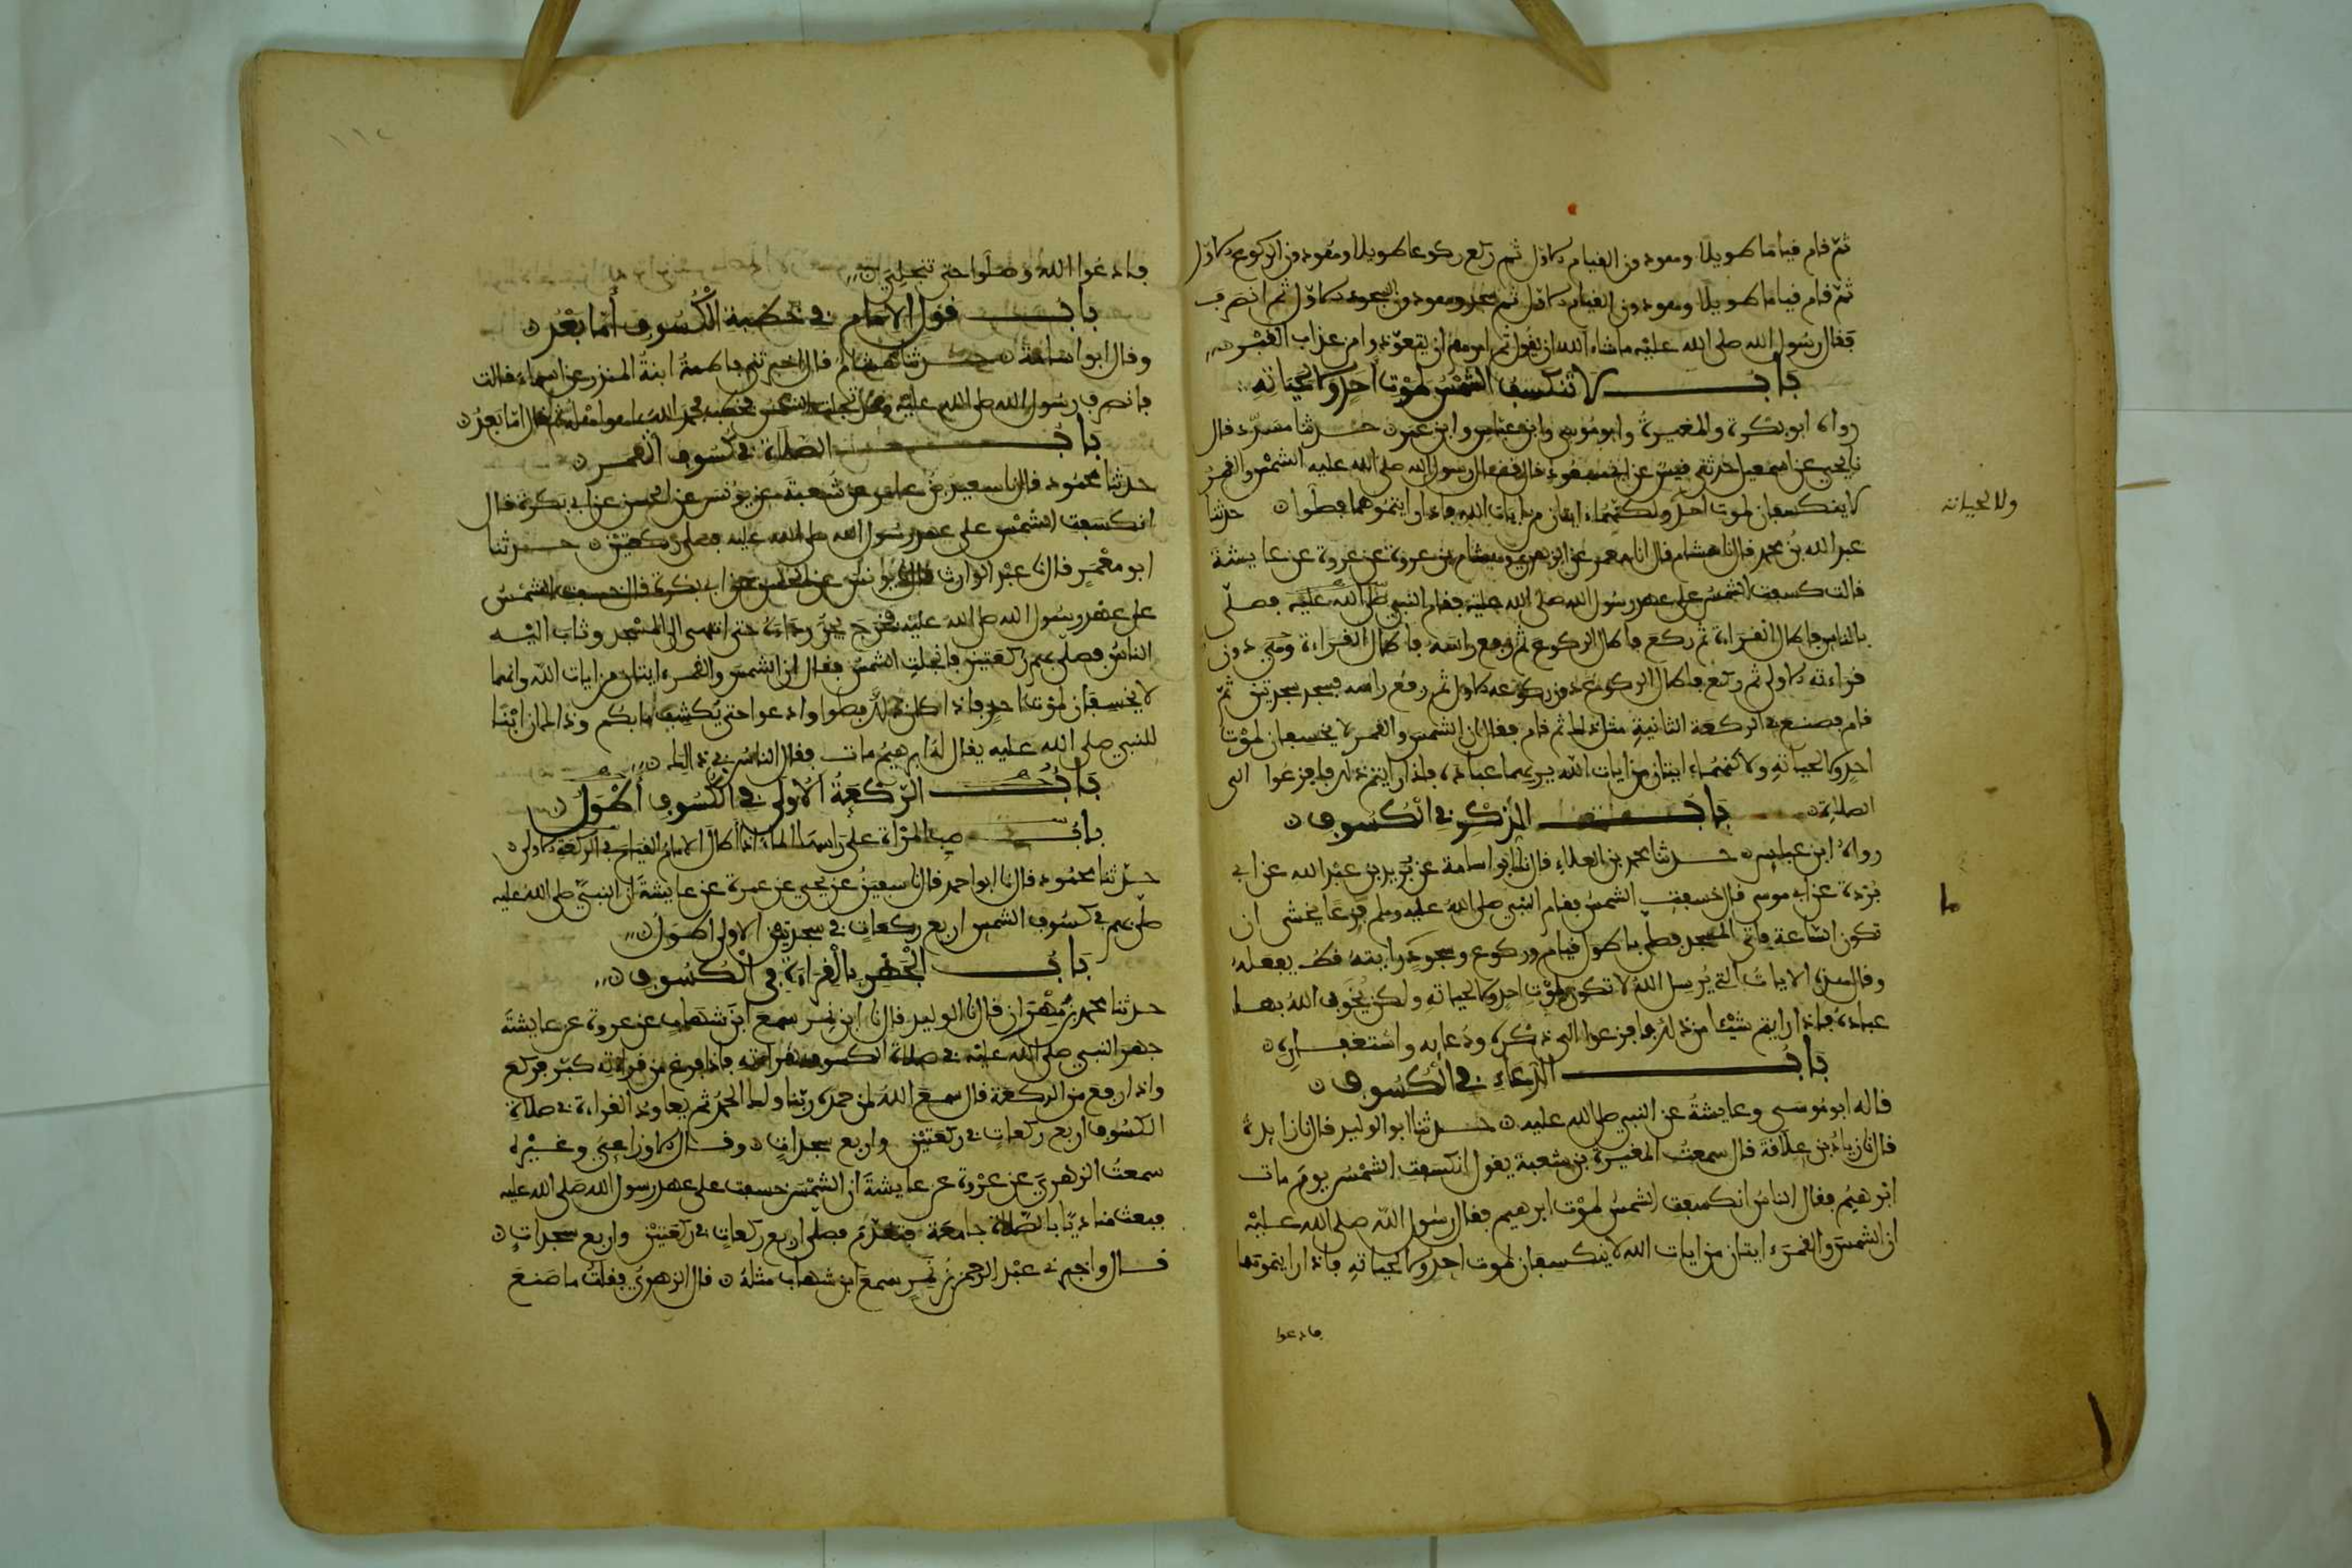 ثم قام قياما طويلا وهو دون القيام الاول ثم ركع ركوعا طويلا وهو دون الركوع الاول
ثم قام قياما طويلا وهو دون القيام الاول ثم سجد وهو دون السجود الاول ثم انصرف
فقال رسول الله صلى الله عليه ما شاء الله ان يقول ثم امرهم ان يتعوذوا من عذاب القبر
باب لا تنكسف الشمس لموت احد ولا لحياته
رواه ابو بكرة والمغيرة وابو موسى وابن عباس وابن عمر حدثنا مسدد قال
نا يحيى عن اسمعيل حدثني قيس عن ابي مسعود قال قال رسول الله صلى الله عليه الشمس والقمر
لا ينكسفان لموت احد ولكنهما ايتان من ايات الله فاذا رايتموهما فصلوا حدثنا
ولا لحياته
عبد الله بن محمد قال نا هشام قال انا معمر عن الزهري وهشام بن عروة عن عروة عن عايشة
قالت كسفت الشمس على عهد رسول الله صلى الله عليه فقام النبي صلى الله عليه فصلى
بالناس فاطال القراءة ثم ركع فاطال الركوع ثم رفع راسه فاطال القراءة وهي دون
قراءته الاولى ثم ركع فاطال الركوع دون ركوعه الاول ثم رفع راسه فسجد سجدتين ثم
قام فصنع في الركعة الثانية مثل ذلك ثم قام فقال ان الشمس والقمر لا يخسفان لموت
احد ولا لحياته ولكنهما ايتان من ايات الله يريهما عباده فاذا رايتم ذلك فافزعوا الى
الصلاة باب الذكر في الكسوف
رواه ابن عباس حدثنا محمد بن العلاء قال نا ابو اسامة عن بريد بن عبد الله عن ابي
بردة عن ابي موسى قال خسفت الشمس فقام النبي صلى الله عليه وسلم فزعا يخشى ان
تكون الساعة فاتى المسجد فصلى باطول قيام وركوع وسجود رايته قط يفعله
وقال هذه الايات التي يرسل الله لا تكون لموت احد ولا لحياته ولكن يخوف الله بها
عباده فاذا رايتم شيئا من ذلك فافزعوا الى ذكره ودعايه واستغفاره
باب الدعاء في الكسوف
قاله ابو موسى وعايشة عن النبي صلى الله عليه حدثنا ابو الوليد قال نا زايدة
قال نا زياد بن علاقة قال سمعت المغيرة بن شعبة يقول انكسفت الشمس يوم مات
ابرهيم فقال الناس انكسفت الشمس لموت ابرهيم فقال رسول الله صلى الله عليه
ان الشمس والقمر ايتان من ايات الله لا ينكسفان لموت احد ولا لحياته فاذا رايتموها
فادعوا
١١٢
فادعوا الله وصلوا حتى تنجلي
باب قول الامام في خطبة الكسوف أما بعد
وقال ابو اسامة حدثنا هشام قال اخبرتني فاطمة ابنة المنذر عن اسماء قالت
فانصرف رسول الله صلى الله عليه وقد تجلت الشمس فخطب فحمد الله بما هو اهله ثم قال اما بعد
باب الصلاة في كسوف القمر
حدثنا محمود قال نا سعيد بن عامر عن شعبة عن يونس عن الحسن عن ابي بكرة قال
انكسفت الشمس على عهد رسول الله صلى الله عليه فصلى ركعتين حدثنا
ابو معمر قال نا عبد الوارث قال نا يونس عن الحسن عن ابي بكرة قال خسفت الشمس
على عهد رسول الله صلى الله عليه فخرج يجر رداءه حتى انتهى الى المسجد وثاب اليه
الناس فصلى بهم ركعتين فانجلت الشمس فقال ان الشمس والقمر ايتان من ايات الله وانهما
لا يخسفان لموت احد فاذا كان ذلك فصلوا وادعوا حتى يكشف ما بكم وذاك ان ابنا
للنبي صلى الله عليه يقال له ابرهيم مات فقال الناس في ذلك
باب الركعة الأولى في الكسوف أطول
باب صب المراة على راسها الماء اذا اطال الامام القيام في الركعة الاولى
حدثنا محمود قال نا ابو احمد قال نا سفين عن يحيى عن عمرة عن عايشة ان النبي صلى الله عليه
صلى بهم في كسوف الشمس اربع ركعات في سجدتين الاولى اطول
باب الجهر بالقراءة في الكسوف
حدثنا محمد بن مهران قال نا الوليد قال نا ابن نمر سمع ابن شهاب عن عروة عن عايشة
جهر النبي صلى الله عليه في صلاة الكسوف بقراءته فاذا فرغ من قراءته كبر فركع
واذا رفع من الركعة قال سمع الله لمن حمده ربنا ولك الحمد ثم يعاود القراءة في صلاة
الكسوف اربع ركعات في ركعتين واربع سجدات وقال الاوزاعي وغيره
سمعت الزهري عن عروة عن عايشة ان الشمس خسفت على عهد رسول الله صلى الله عليه
فبعث مناديا بالصلاة جامعة فتقدم فصلى اربع ركعات في ركعتين واربع سجدات
قال واخبرني عبد الرحمن بن نمر سمع ابن شهاب مثله قال الزهري فقلت ما صنع